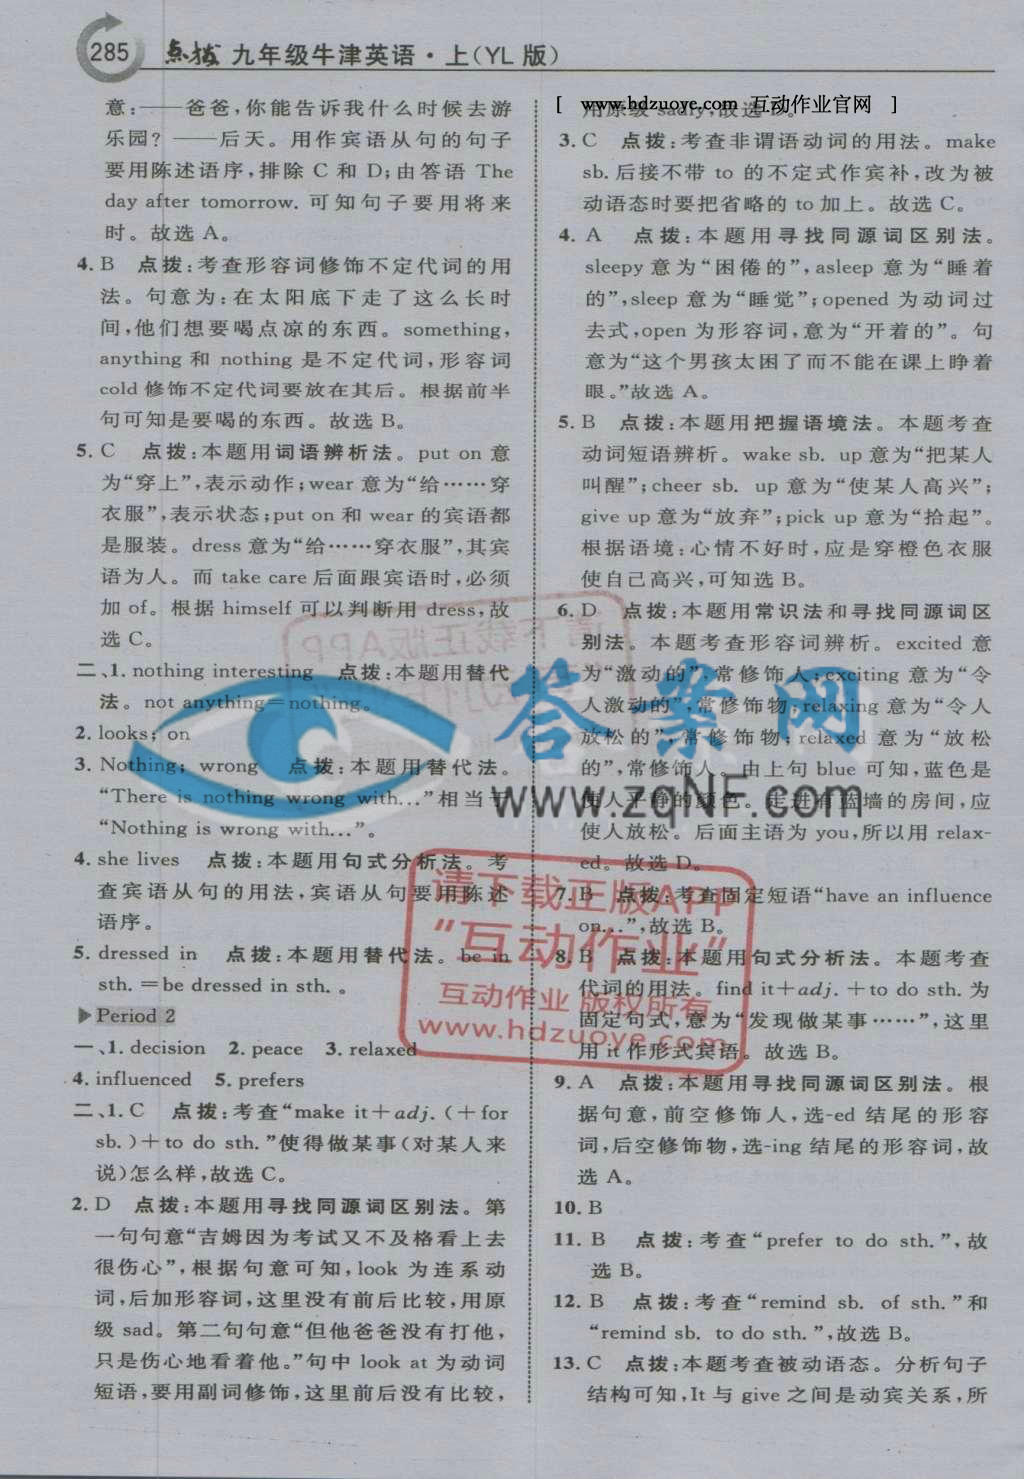 285 点拨 九年级牛津英语·上(YL 版)
意:——爸爸,你能告诉我什么时候去游
乐园? ——后天。用作宾语从句的句子
要用陈述语序,排除 C 和 D;由答语 The
day after tomorrow. 可知句子要用将来
时。故选 A。
4. B 点拨:考查形容词修饰不定代词的用
法。句意为:在太阳底下走了这么长时
间,他们想要喝点凉的东西。something,
anything 和 nothing 是不定代词,形容词
cold 修饰不定代词要放在其后。根据前半
句可知是要喝的东西。故选 B。
5. C 点拨:本题用词语辨析法。put on 意
为“穿上”,表示动作;wear 意为“给……穿
衣服”,表示状态;put on 和 wear 的宾语都
是服装。dress 意为“给……穿衣服”,其宾
语为人。而 take care 后面跟宾语时,必须
加 of。根据 himself 可以判断用 dress,故
选 C。
二、1. nothing interesting 点拨:本题用替代
法。not anything=nothing。
2. looks; on
3. Nothing; wrong 点拨:本题用替代法。
“There is nothing wrong with...”相当于
“Nothing is wrong with...”。
4. she lives 点拨:本题用句式分析法。考
查宾语从句的用法,宾语从句要用陈述
语序。
5. dressed in 点拨:本题用替代法。be in
sth. =be dressed in sth. 。
▶Period 2
一、1. decision 2. peace 3. relaxed
4. influenced 5. prefers
二、1. C 点拨:考查“make it+adj. (+for
sb.)+to do sth. ”使得做某事(对某人来
说)怎么样,故选 C。
2. D 点拨:本题用寻找同源词区别法。第
一句句意“吉姆因为考试又不及格看上去
很伤心”,根据句意可知,look 为连系动
词,后加形容词,这里没有前后比较,用原
级 sad。第二句句意“但他爸爸没有打他,
只是伤心地看着他。”句中 look at 为动词
短语,要用副词修饰,这里前后没有比较,
[ www.hdzuoye.com 互动作业官网 ]
用原级 sadly,故选 D。
3. C 点拨:考查非谓语动词的用法。make
sb. 后接不带 to 的不定式作宾补,改为被
动语态时要把省略的 to 加上。故选 C。
4. A 点拨:本题用寻找同源词区别法。
sleepy 意为“困倦的”,asleep 意为“睡着
的”,sleep 意为“睡觉”;opened 为动词过
去式,open 为形容词,意为“开着的”。句
意为“这个男孩太困了而不能在课上睁着
眼。”故选 A。
5. B 点拨:本题用把握语境法。本题考查
动词短语辨析。wake sb. up 意为“把某人
叫醒”;cheer sb. up 意为“使某人高兴”;
give up 意为“放弃”;pick up 意为“拾起”。
根据语境:心情不好时,应是穿橙色衣服
使自己高兴,可知选 B。
6. D 点拨:本题用常识法和寻找同源词区
别法。本题考查形容词辨析。excited 意
为“激动的”,常修饰人;exciting 意为“令
人激动的”,常修饰物;relaxing 意为“令人
放松的”,常修饰物;relaxed 意为“放松
的”,常修饰人。由上句 blue 可知,蓝色是
使人平静的颜色。走进有蓝墙的房间,应
使人放松。后面主语为 you,所以用 relax-
ed。故选 D。
7. B 点拨:考查固定短语“have an influence
on...”,故选 B。
8. B 点拨:本题用句式分析法。本题考查
代词的用法。find it+adj. +to do sth. 为
固定句式,意为“发现做某事……”,这里
用 it 作形式宾语。故选 B。
9. A 点拨:本题用寻找同源词区别法。根
据句意,前空修饰人,选-ed 结尾的形容
词,后空修饰物,选-ing 结尾的形容词,故
选 A。
10. B
11. B 点拨:考查“prefer to do sth. ”,故
选 B。
12. B 点拨:考查“remind sb. of sth. ”和
“remind sb. to do sth. ”,故选 B。
13. C 点拨:本题考查被动语态。分析句子
结构可知,It 与 give 之间是动宾关系,所
答案网
www.zqNF.com
请下载正版APP
“互动作业”
互动作业 版权所有
www.hdzuoye.com